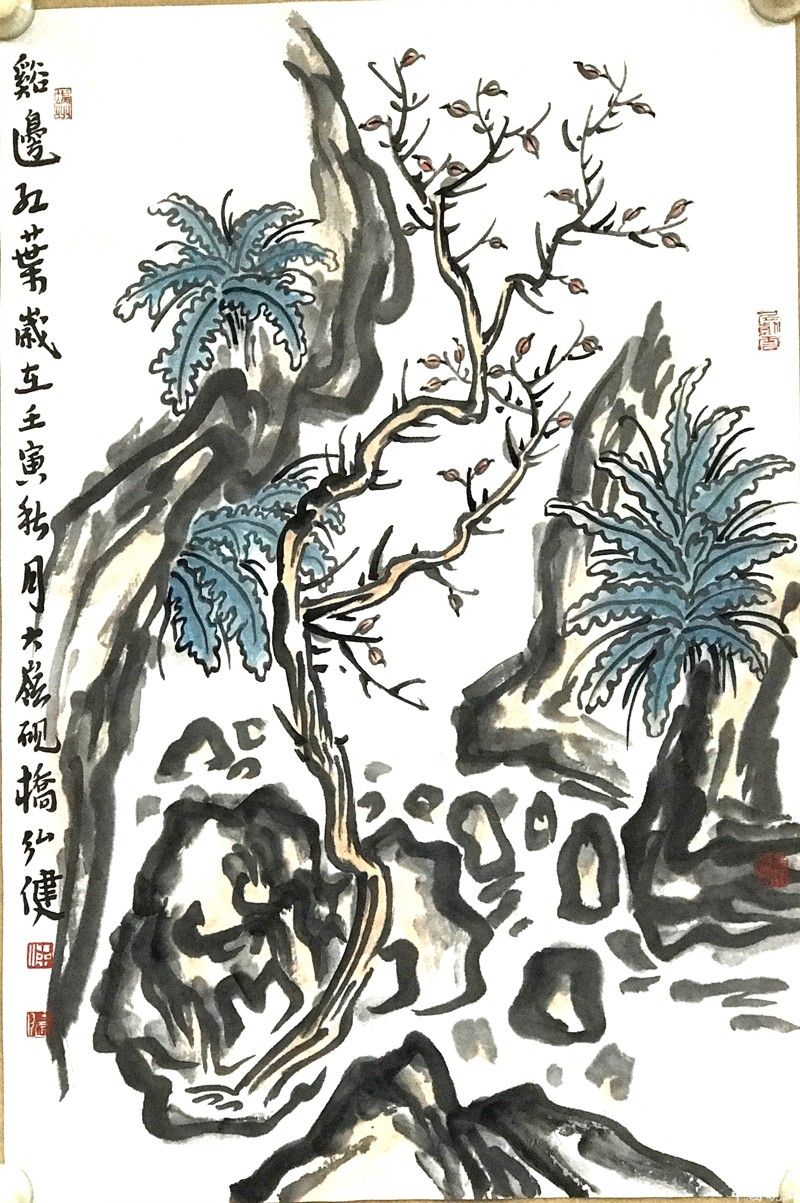 谿邊紅葉歲在壬寅秋月大嶺硯橋弘健